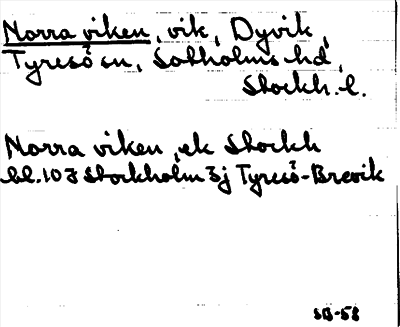 Norra viken, vik, Dyvik,
Tyresö sn, Sotholms hd,
Stockh. l.
Norra viken, ek Stockh
bl. 10 I Stockholm 3j Tyresö-Brevik
SB-58